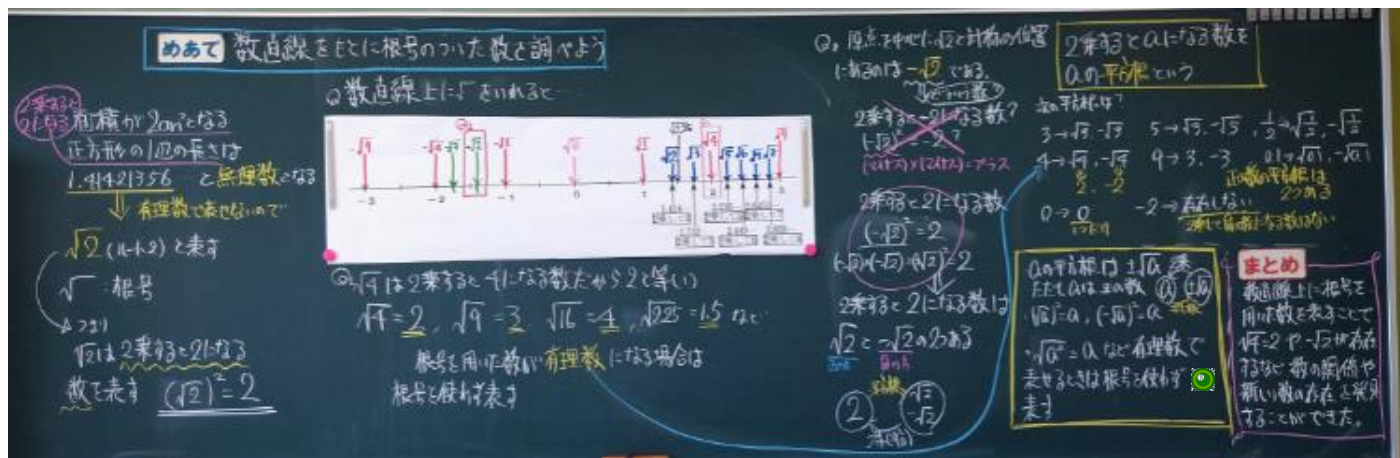 めあて 数直線をもとに根号のついた数を調べよう
2乗すると
2になる
面積が2cm²となる
正方形の1辺の長さは
1.41421356 と無理数となる
有理数で表せないので
√2 (ルート2) と表す
√ : 根号
つまり
√2は2乗すると2になる
数を表す (√2)²=2
Q 数直線上に√をいれると…
-3 -2 -1 0 1 2 3
√4は2乗すると4になる数だから2と等しい
√4=2, √9=3 √16=4, √2.25=1.5 など
根号を用いた数が有理数になる場合は
根号を使わず表す
Q. 原点を中心に√2と対称の位置
にあるのは-√2である。
どういう数?
2乗すると-2になる数?
(-√2)²=-2?
(マイナス)×(マイナス)=プラス
2乗すると2になる数
(-√2)²=2
(-√2)×(-√2)=(√2)²=2
2乗すると2になる数は
√2と-√2の2つある
2 平方根 √2
-√2
2乗すると aになる数を
aの平方根という
次の平方根は?
3→√3, -√3 5→√5, -√5, 1/2→√1/2, -√1/2
4→√4, -√4 9→3, -3 0.1→√0.1, -√0.1
2, -2
正の数の平方根は
2つある
0→0 -2→存在しない
2乗して負の数になる数はない
aの平方根は ±√a
ただしaは正の数
(√a)²=a, (-√a)²=a
√a²=a など有理数で
表せるときは根号を使わず
表す
まとめ
数直線上に根号を
用いた数を表すことで
√4=2や-√2が存在
するなど数の関係や
新しい数の存在を発見
することができた。